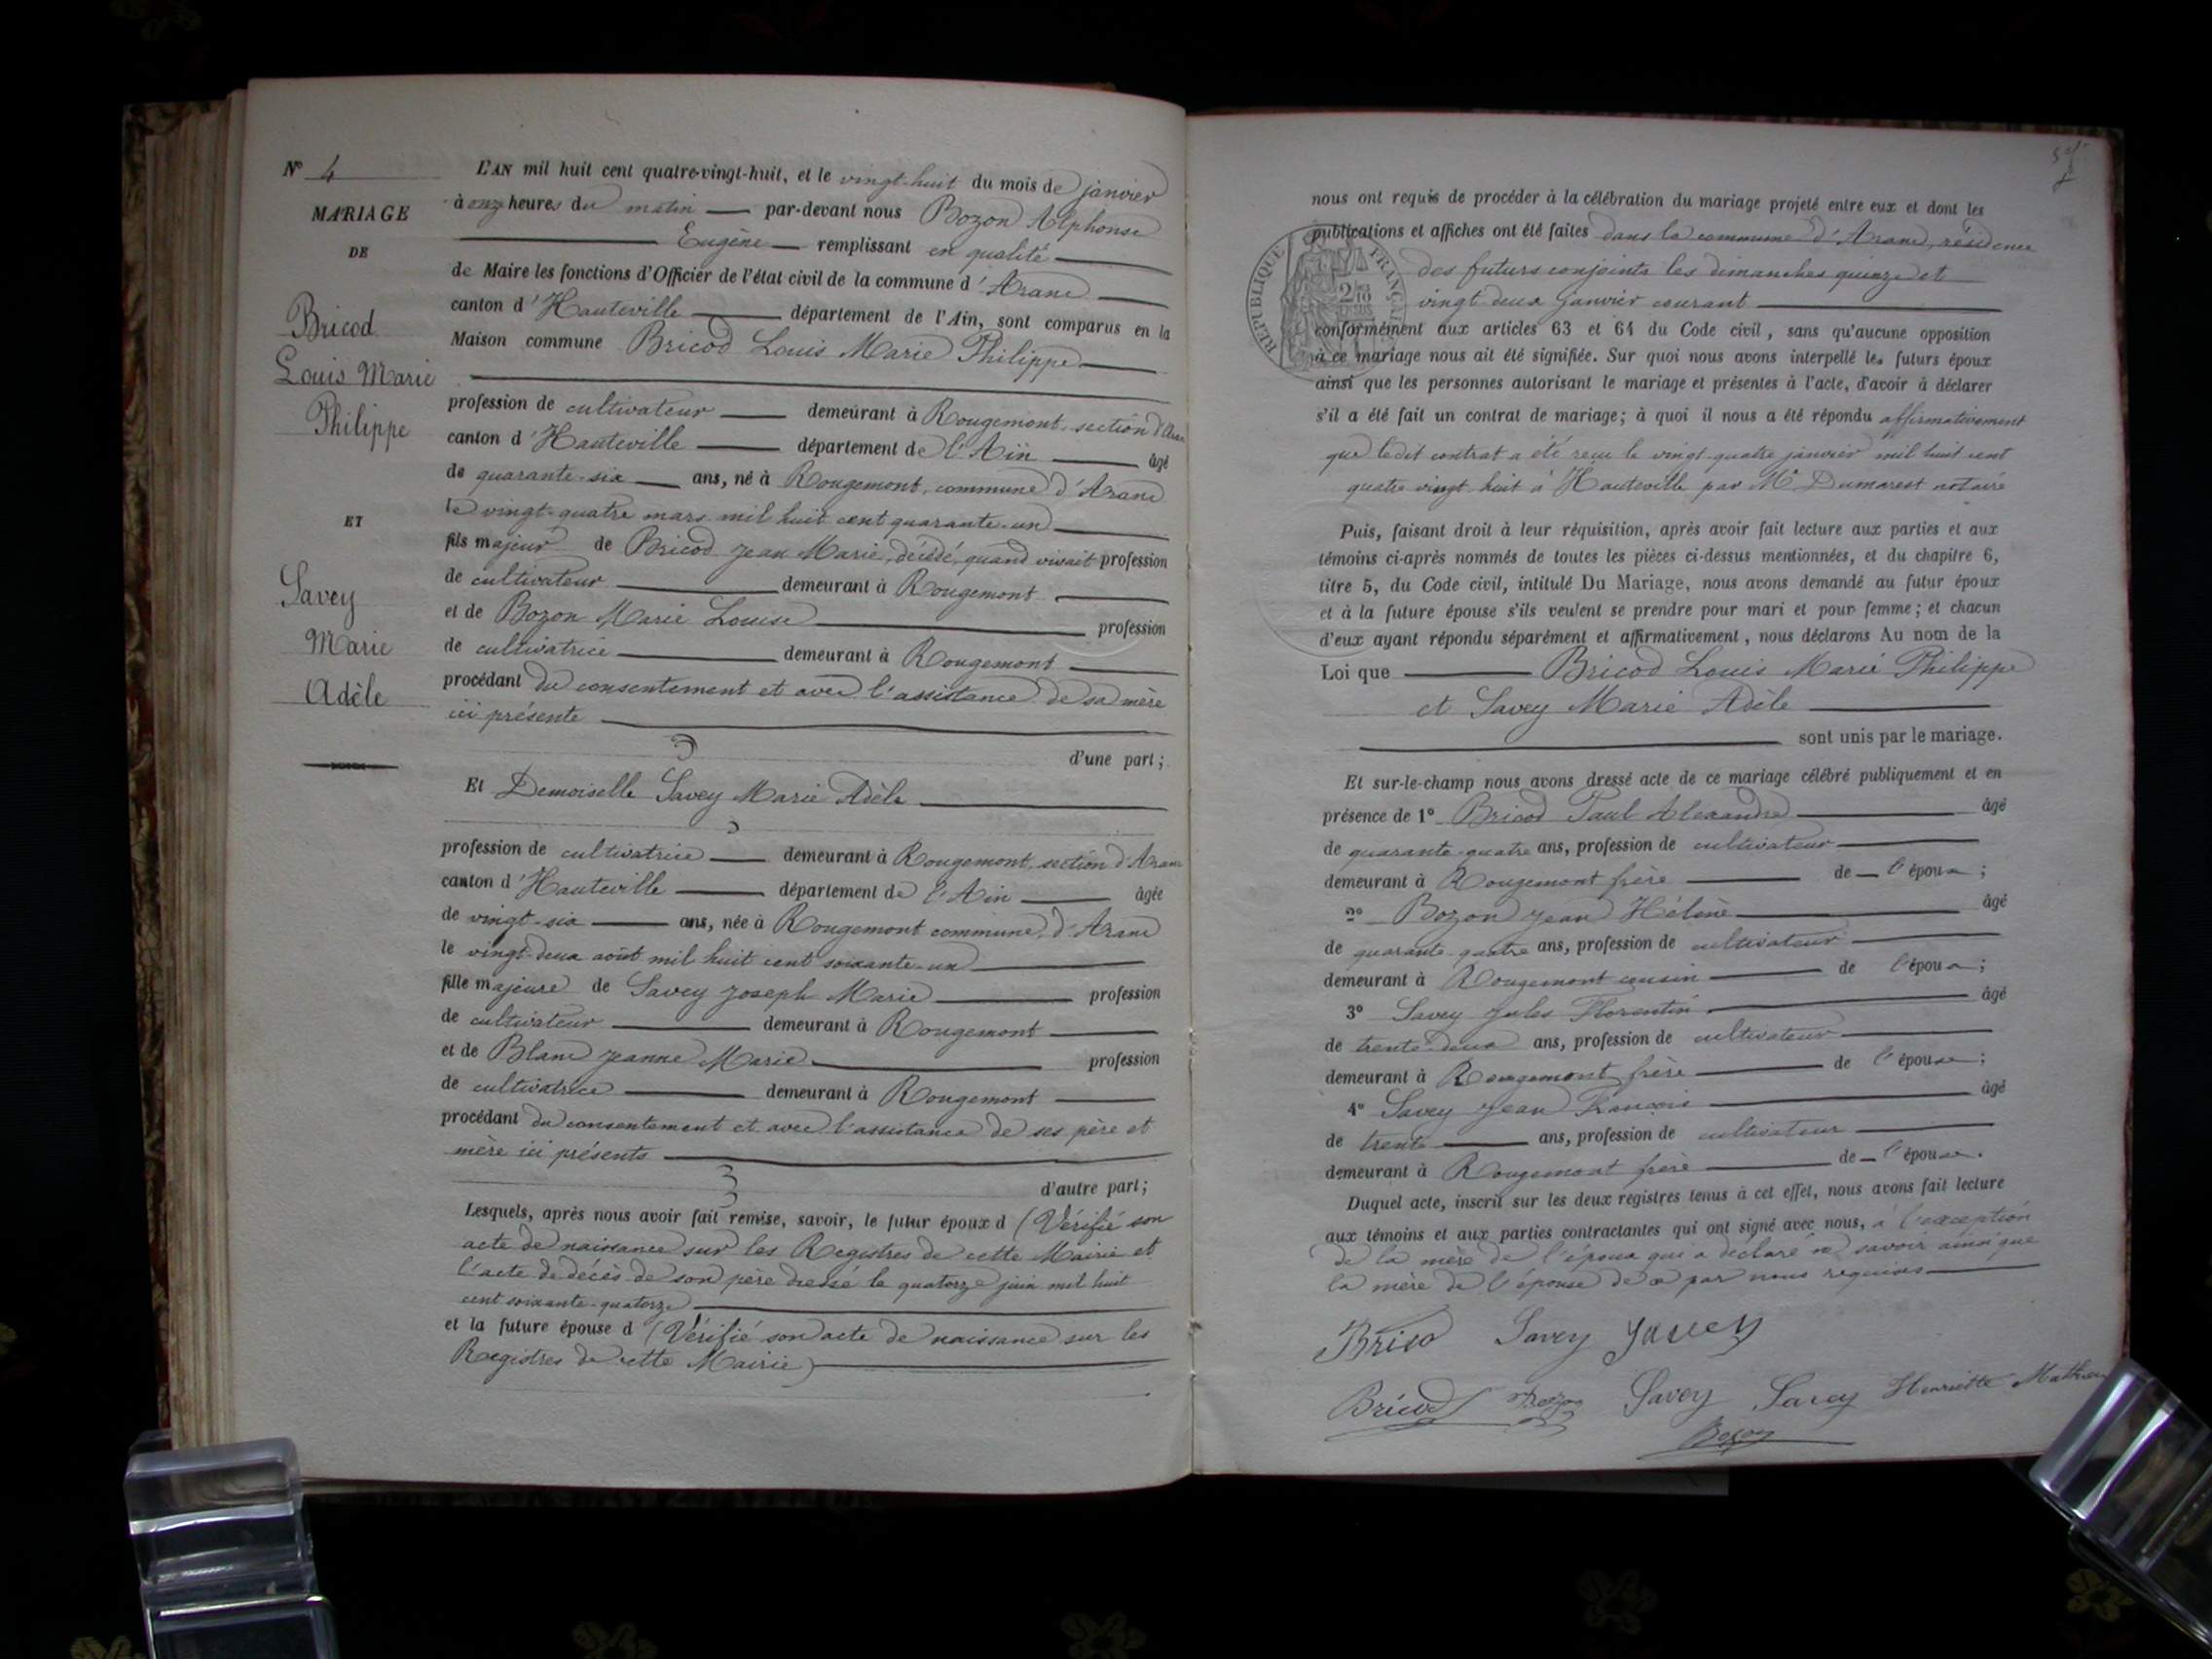 N° 4
MARIAGE
DE
Bricod
Louis Marie
Philippe
ET
Savey
Marie
Adèle
L'AN mil huit cent quatre-vingt-huit, et le vingt-huit du mois de janvier
à onze heures du matin par-devant nous Bozon Alphonse
Eugène remplissant en qualité
de Maire les fonctions d'Officier de l'état civil de la commune d'Aranc
canton d'Hauteville département de l'Ain, sont comparus en la
Maison commune Bricod Louis Marie Philippe
profession de cultivateur demeurant à Rougemont, section d'Aranc
canton d'Hauteville département de l'Ain âgé
de quarante-six ans, né à Rougemont, commune d'Aranc
le vingt-quatre mars mil huit cent quarante-un
fils majeur de Bricod Jean Marie, décédé, quand vivait profession
de cultivateur demeurant à Rougemont
et de Bozon Marie Louise profession
de cultivatrice demeurant à Rougemont
procédant du consentement et avec l'assistance de sa mère
ici présente
d'une part;
Et Demoiselle Savey Marie Adèle
profession de cultivatrice demeurant à Rougemont, section d'Aranc
canton d'Hauteville département de l'Ain âgée
de vingt-six ans, née à Rougemont commune d'Aranc
le vingt-deux août mil huit cent soixante-un
fille majeure de Savey Joseph Marie profession
de cultivateur demeurant à Rougemont
et de Blanc Jeanne Marie profession
de cultivatrice demeurant à Rougemont
procédant du consentement et avec l'assistance de ses père et
mère ici présents
d'autre part;
Lesquels, après nous avoir fait remise, savoir, le futur époux d (Vérifié son
acte de naissance sur les Registres de cette Mairie et
l'acte de décès de son père dressé le quatorze juin mil huit
cent soixante-quatorze
et la future épouse d (Vérifié son acte de naissance sur les
Registres de cette Mairie)
nous ont requis de procéder à la célébration du mariage projeté entre eux et dont les
publications et affiches ont été faites dans la commune d'Aranc, résidence
des futurs conjoints les dimanches quinze et
vingt deux janvier courant
conformément aux articles 63 et 64 du Code civil, sans qu'aucune opposition
à ce mariage nous ait été signifiée. Sur quoi nous avons interpellé les futurs époux
ainsi que les personnes autorisant le mariage et présentes à l'acte, d'avoir à déclarer
s'il a été fait un contrat de mariage; à quoi il nous a été répondu affirmativement
que ledit contrat a été reçu le vingt-quatre janvier mil huit cent
quatre vingt huit à Hauteville par Me Dumarest notaire
Puis, faisant droit à leur réquisition, après avoir fait lecture aux parties et aux
témoins ci-après nommés de toutes les pièces ci-dessus mentionnées, et du chapitre 6,
titre 5, du Code civil, intitulé Du Mariage, nous avons demandé au futur époux
et à la future épouse s'ils veulent se prendre pour mari et pour femme; et chacun
d'eux ayant répondu séparément et affirmativement, nous déclarons Au nom de la
Loi que Bricod Louis Marie Philippe
et Savey Marie Adèle
sont unis par le mariage.
Et sur-le-champ nous avons dressé acte de ce mariage célébré publiquement et en
présence de 1° Bricod Paul Alexandre âgé
de quarante-quatre ans, profession de cultivateur
demeurant à Rougemont frère de l'époux;
2° Bozon Jean Hélène âgé
de quarante-quatre ans, profession de cultivateur
demeurant à Rougemont cousin de l'époux;
3° Savey Jules Florentin âgé
de trente-deux ans, profession de cultivateur
demeurant à Rougemont frère de l'épouse;
4° Savey Jean François âgé
de trente ans, profession de cultivateur
demeurant à Rougemont frère de l'épouse.
Duquel acte, inscrit sur les deux registres tenus à cet effet, nous avons fait lecture
aux témoins et aux parties contractantes qui ont signé avec nous, à l'exception
de la mère de l'époux qui a déclaré ne savoir ainsi que
la mère de l'épouse de ce par nous requises
Brico Savey Savey
Bricod Bozon Savey Savey Henriette Mathieu
Bozon
RÉPUBLIQUE FRANÇAISE